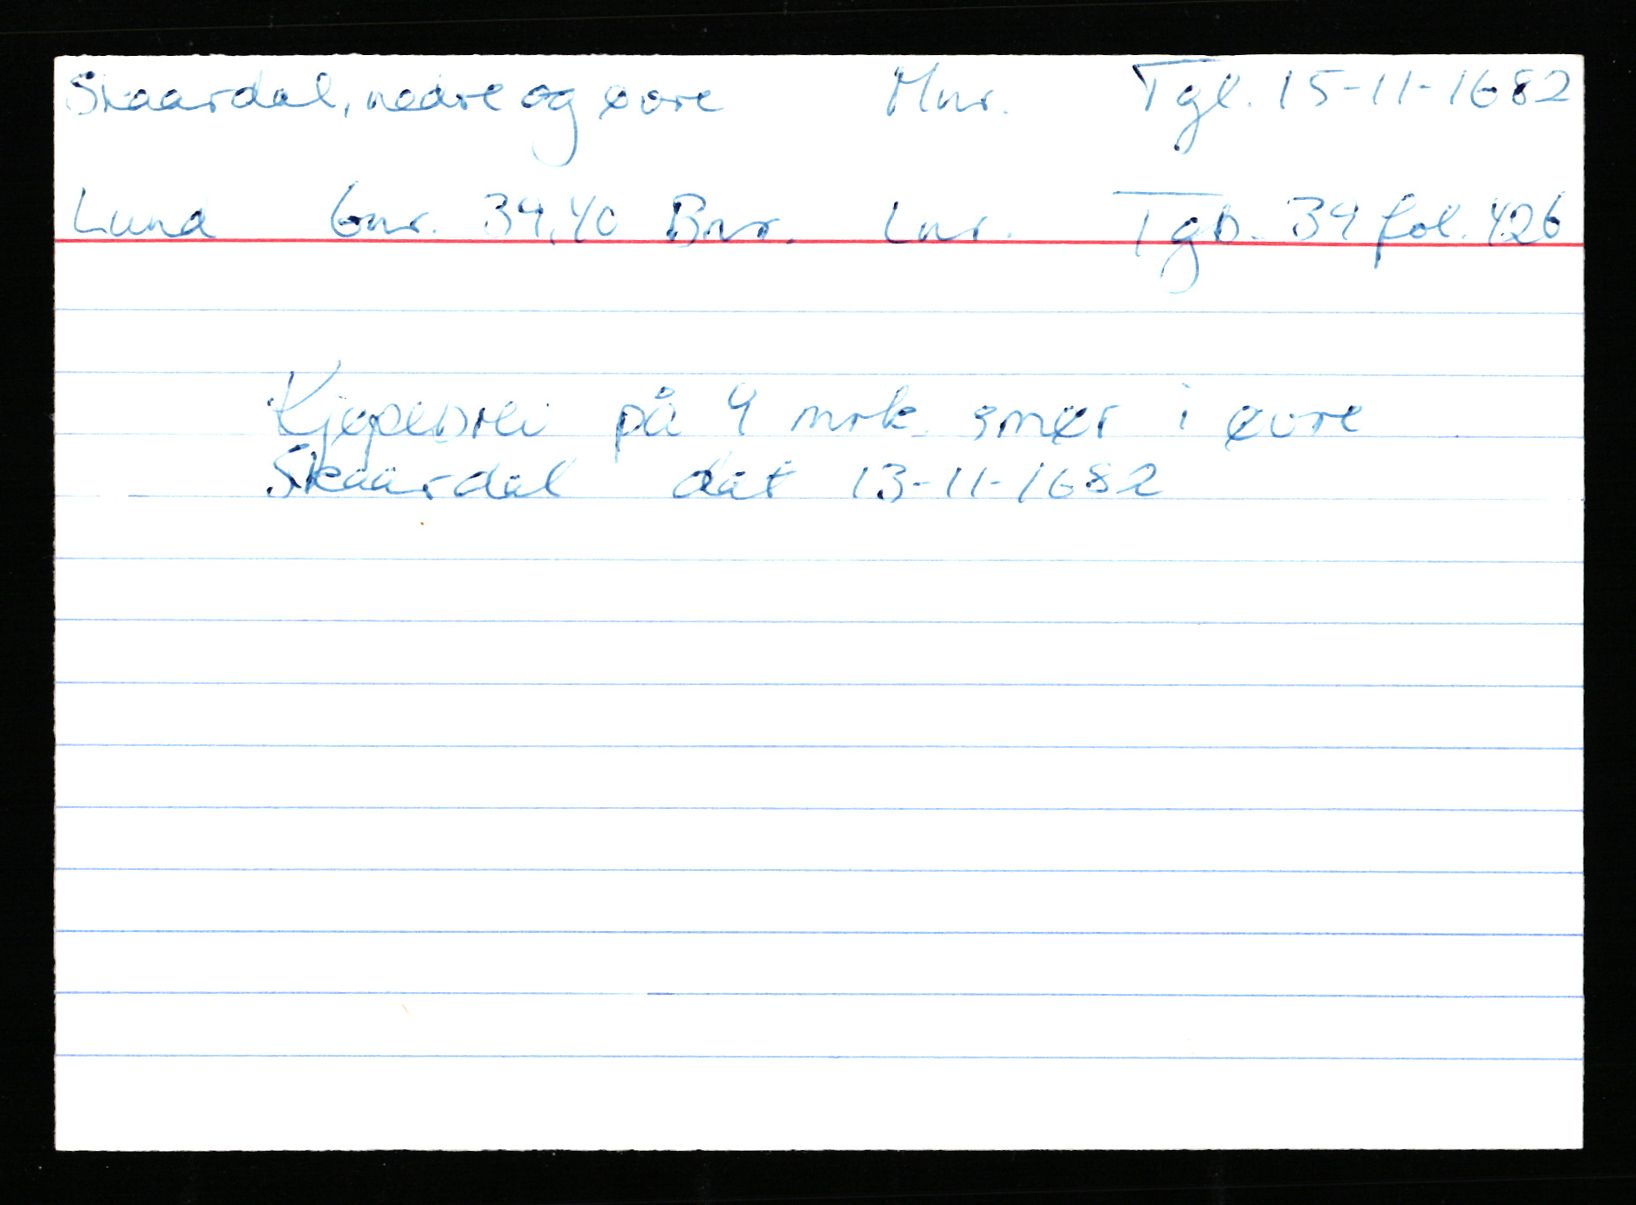 Skaardal, nedre og øvre Mnr. Tgl. 15-11-1682
Lund Gnr. 39,40 Bnr. Lnr. Tgb. 39 fol. 426
Kjøpebrev på 9 mrk. smør i øvre
Skaardal dat 13-11-1682